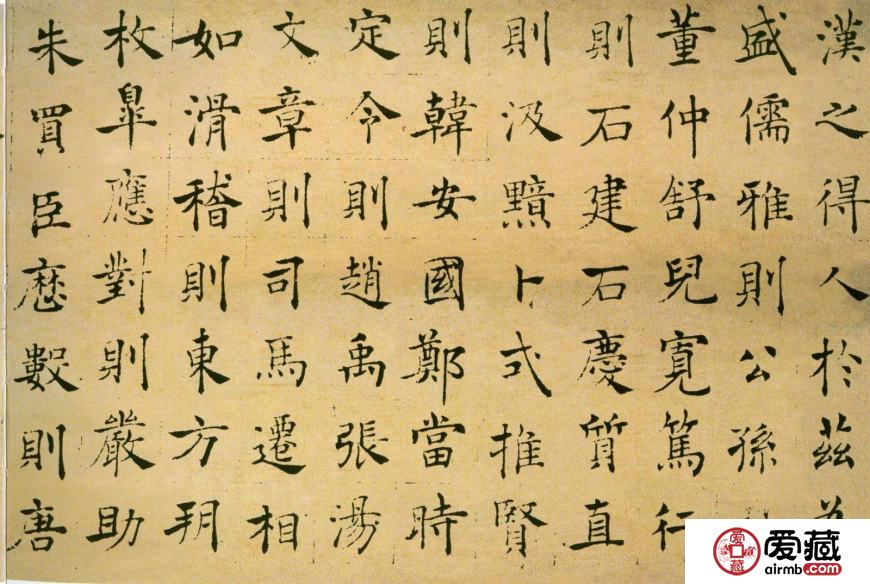 漢之得人於茲
盛儒雅則公孫
董仲舒兒寬篤
則石建石慶質直
則汲黯卜式推賢
則韓安國鄭當時
定令則趙禹張湯
文章則司馬遷相
如滑稽則東方朔
枚皋應對則嚴助
朱買臣歷數則唐
爱藏
爱藏
airmb.com